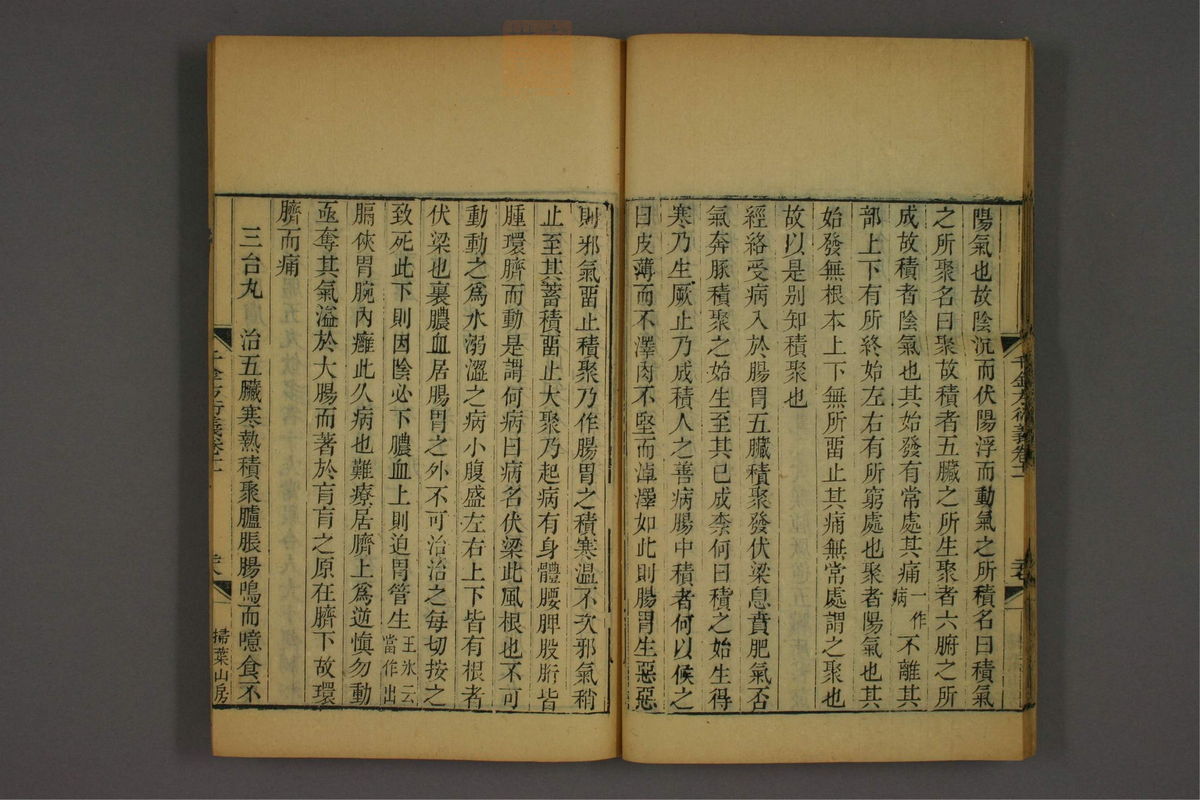 陽氣也故陰沉而伏陽浮而動氣之所積名曰積氣
之所聚名曰聚故積者五臟之所生聚者六腑之所
成故積者陰氣也其始發有常處其痛一作病不離其
部上下有所終始左右有所窮處也聚者陽氣也其
始發無根本上下無所畱止其痛無常處謂之聚也
故以是别知積聚也
經絡受病入於腸胃五臟積聚發伏梁息賁肥氣否
氣奔豚積聚之始生至其已成柰何曰積之始生得
寒乃生厥止乃成積人之善病腸中積者何以候之
曰皮薄而不澤肉不堅而淖澤如此則腸胃生惡惡
則邪氣畱止積聚乃作腸胃之積寒温不次邪氣稍
止至其蓄積畱止大聚乃起病有身體腰脾股胻皆
腫環臍而動是謂何病曰病名伏梁此風根也不可
動動之爲水溺澀之病小腹盛左右上下皆有根者
伏梁也裏膿血居腸胃之外不可治治之每切按之
致死此下則因陰必下膿血上則迫胃管生王氷云當作出
膈俠胃腕內癰此久病也難療居臍上爲逆慎勿動
亟奪其氣溢於大腸而著於肓肓之原在臍下故環
臍而痛
三台丸 治五臟寒熱積聚臚脹腸鳴而噫食不
千金方衍義卷十一
掃葉山房